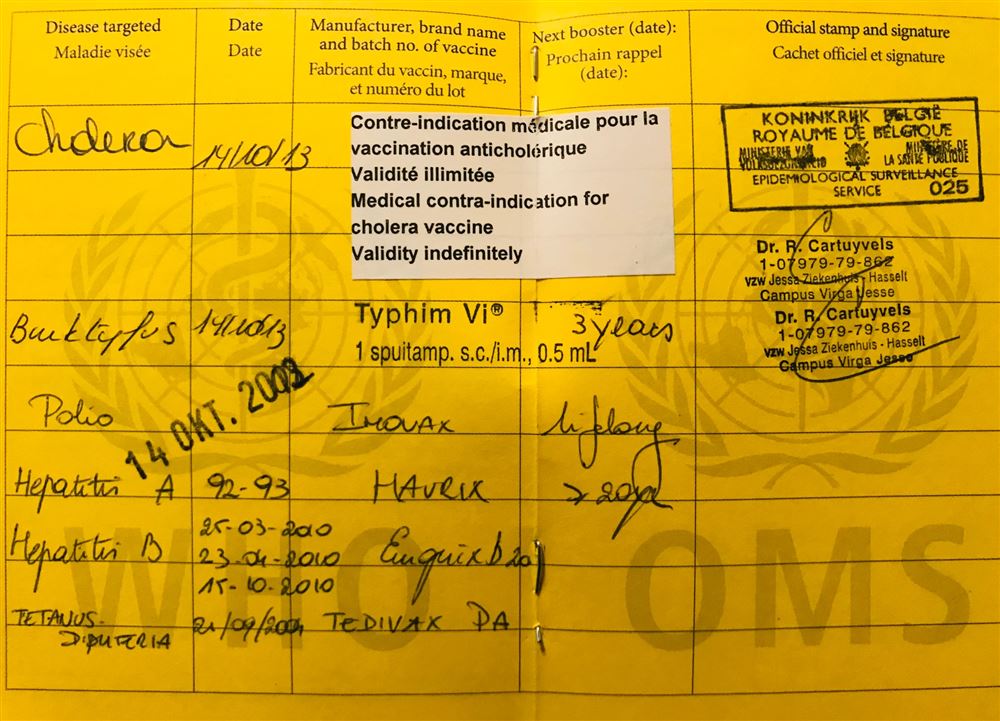 Disease targeted
Maladie visée
Date
Date
Manufacturer, brand name
and batch no. of vaccine
Fabricant du vaccin, marque,
et numéro du lot
Next booster (date):
Prochain rappel
(date):
Official stamp and signature
Cachet officiel et signature
Cholera
14/10/13
Contre-indication médicale pour la
vaccination anticholérique
Validité illimitée
Medical contra-indication for
cholera vaccine
Validity indefinitely
KONINKRIJK BELGIË
ROYAUME DE BELGIQUE
MINISTERIE VAN
VOLKSGEZONDHEID
MINISTERE DE
LA SANTE PUBLIQUE
EPIDEMIOLOGICAL SURVEILLANCE
SERVICE 025
Dr. R. Cartuyvels
1-07979-79-862
vzw Jessa Ziekenhuis - Hasselt
Campus Virga Jesse
Buiktyfus
14/10/13
Typhim Vi®
1 spuitamp. s.c./i.m., 0.5 mL
3 years
Dr. R. Cartuyvels
1-07979-79-862
vzw Jessa Ziekenhuis - Hasselt
Campus Virga Jesse
Polio
14 OKT. 2003
IMOVAX
lifelong
Hepatitis A
92-93
HAVRIX
Hepatitis B
25-03-2010
23-04-2010
15-10-2010
TETANUS-
DIPHTERIA
21/09/
TEDIVAX PA
WHO OMS